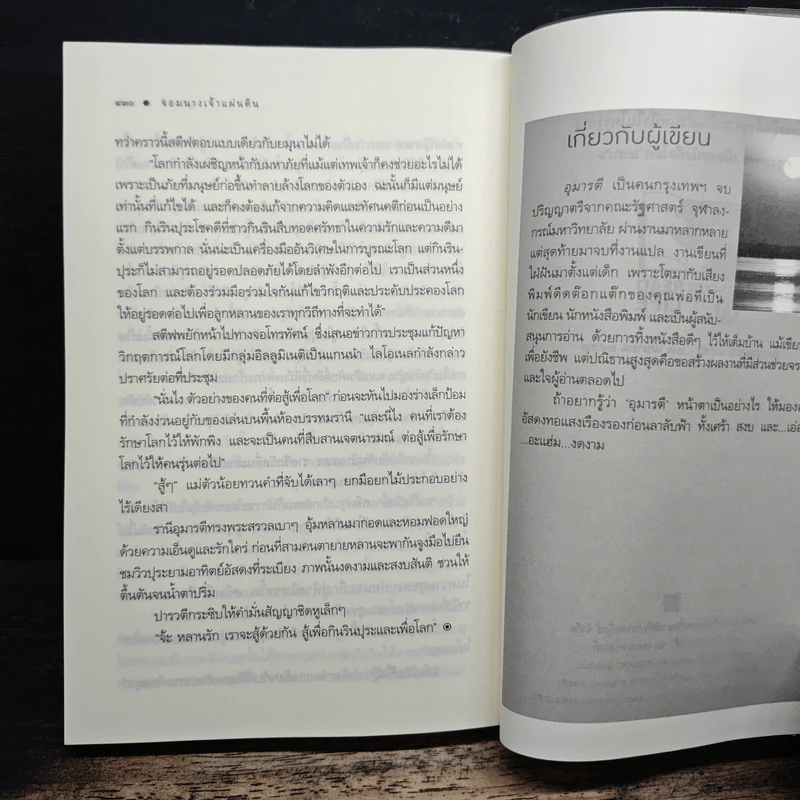 ๔๓๐ ● จอมนางเจ้าแผ่นดิน
ทว่าคราวนี้สตีฟตอบแบบเดียวกับยมุนาไม่ได้
“โลกกำลังเผชิญหน้ากับมหาภัยที่แม้แต่เทพเจ้าก็คงช่วยอะไรไม่ได้
เพราะเป็นภัยที่มนุษย์ก่อขึ้นทำลายล้างโลกของตัวเอง ฉะนั้นก็มีแต่มนุษย์
เท่านั้นที่แก้ไขได้ และก็คงต้องแก้จากความคิดและทัศนคติก่อนเป็นอย่าง
แรก กินรินปุระโชคดีที่ชาวกินรินสืบทอดศรัทธาในความรักและความดีมา
ตั้งแต่บรรพกาล นั่นน่ะเป็นเครื่องมืออันวิเศษในการบูรณะโลก แต่กินริน-
ปุระก็ไม่สามารถอยู่รอดปลอดภัยได้โดยลำพังอีกต่อไป เราเป็นส่วนหนึ่ง
ของโลก และต้องร่วมมือร่วมใจกันแก้ไขวิกฤติและประคับประคองโลก
ให้อยู่รอดต่อไปเพื่อลูกหลานของเราทุกวิถีทางที่จะทำได้”
สตีฟพยักหน้าไปทางจอโทรทัศน์ ซึ่งเสนอข่าวการประชุมแก้ปัญหา
วิกฤตการณ์โลกโดยมีกลุ่มอิลลูมิเนติเป็นแกนนำ ไลโอเนลกำลังกล่าว
ปราศรัยต่อที่ประชุม
“นั่นไง ตัวอย่างของคนที่ต่อสู้เพื่อโลก” ก่อนจะหันไปมองร่างเล็กป้อม
ที่กำลังง่วนอยู่กับของเล่นบนพื้นห้องบรรทมรานี “และนี่ไง คนที่เราต้อง
รักษาโลกไว้ให้พักพิง และจะเป็นคนที่สืบสานเจตนารมณ์ ต่อสู้เพื่อรักษา
โลกไว้ให้คนรุ่นต่อไป”
“สู้ๆ” แม่ตัวน้อยทวนคำที่จับได้เลาๆ ยกมือยกไม้ประกอบอย่าง
ไร้เดียงสา
รานีอุมารตีทรงพระสรวลเบาๆ อุ้มหลานมากอดและหอมฟอดใหญ่
ด้วยความเอ็นดูและรักใคร่ ก่อนที่สามคนตายายหลานจะพากันจูงมือไปยืน
ชมวิวปุระยามอาทิตย์อัสดงที่ระเบียง ภาพนั้นงดงามและสงบสันติ ชวนให้
ตื้นตันจนน้ำตาปริ่ม
ปารวตีกระซิบให้คำมั่นสัญญาชิดหูเล็กๆ
“จ้ะ หลานรัก เราจะสู้ด้วยกัน สู้เพื่อกินรินปุระและเพื่อโลก”
เกี่ยวกับผู้เขียน
อุมารตี เป็นคนกรุงเทพฯ จบ
ปริญญาตรีจากคณะรัฐศาสตร์ จุฬาลง-
กรณ์มหาวิทยาลัย ผ่านงานมาหลากหลาย
แต่สุดท้ายมาจบที่งานแปล งานเขียนที่
ใฝ่ฝันมาตั้งแต่เด็ก เพราะโตมากับเสียง
พิมพ์ดีดต๊อกแต๊กของคุณพ่อที่เป็น
นักเขียน นักหนังสือพิมพ์ และเป็นผู้สนับ-
สนุนการอ่าน ด้วยการทิ้งหนังสือดีๆ ไว้ให้เต็มบ้าน แม้เขียน
เพื่อยังชีพ แต่ปณิธานสูงสุดคือขอสร้างผลงานที่มีส่วนช่วยจร
และใจผู้อ่านตลอดไป
ถ้าอยากรู้ว่า ‘อุมารตี’ หน้าตาเป็นอย่างไร ให้มอง
อัสดงทอแสงเรืองรองก่อนลาลับฟ้า ทั้งเศร้า สงบ และ...เอ่อ
...อะแฮ่ม...งดงาม